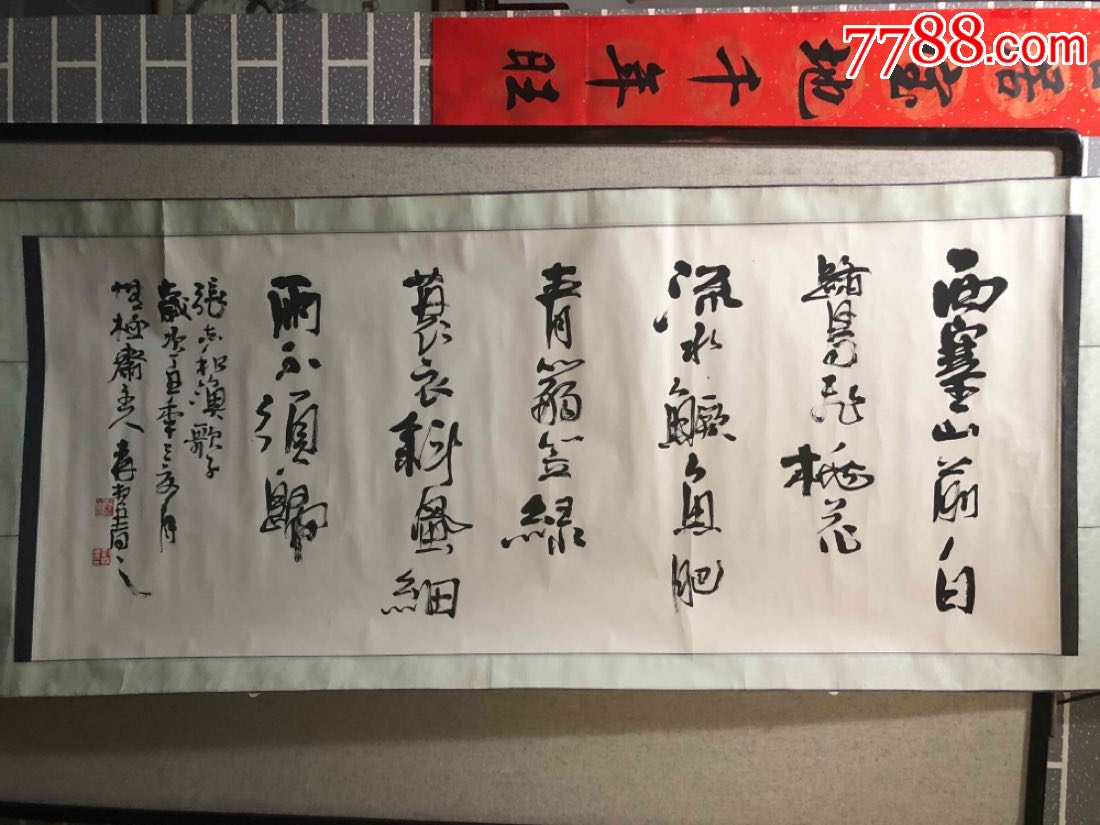 7788.com
居宝地千年旺
西塞山前白
鷺飛桃花
流水鱖魚肥
青箬笠綠
蓑衣斜風細
雨不須歸
張志和漁歌子
歲次丁丑年之夏月